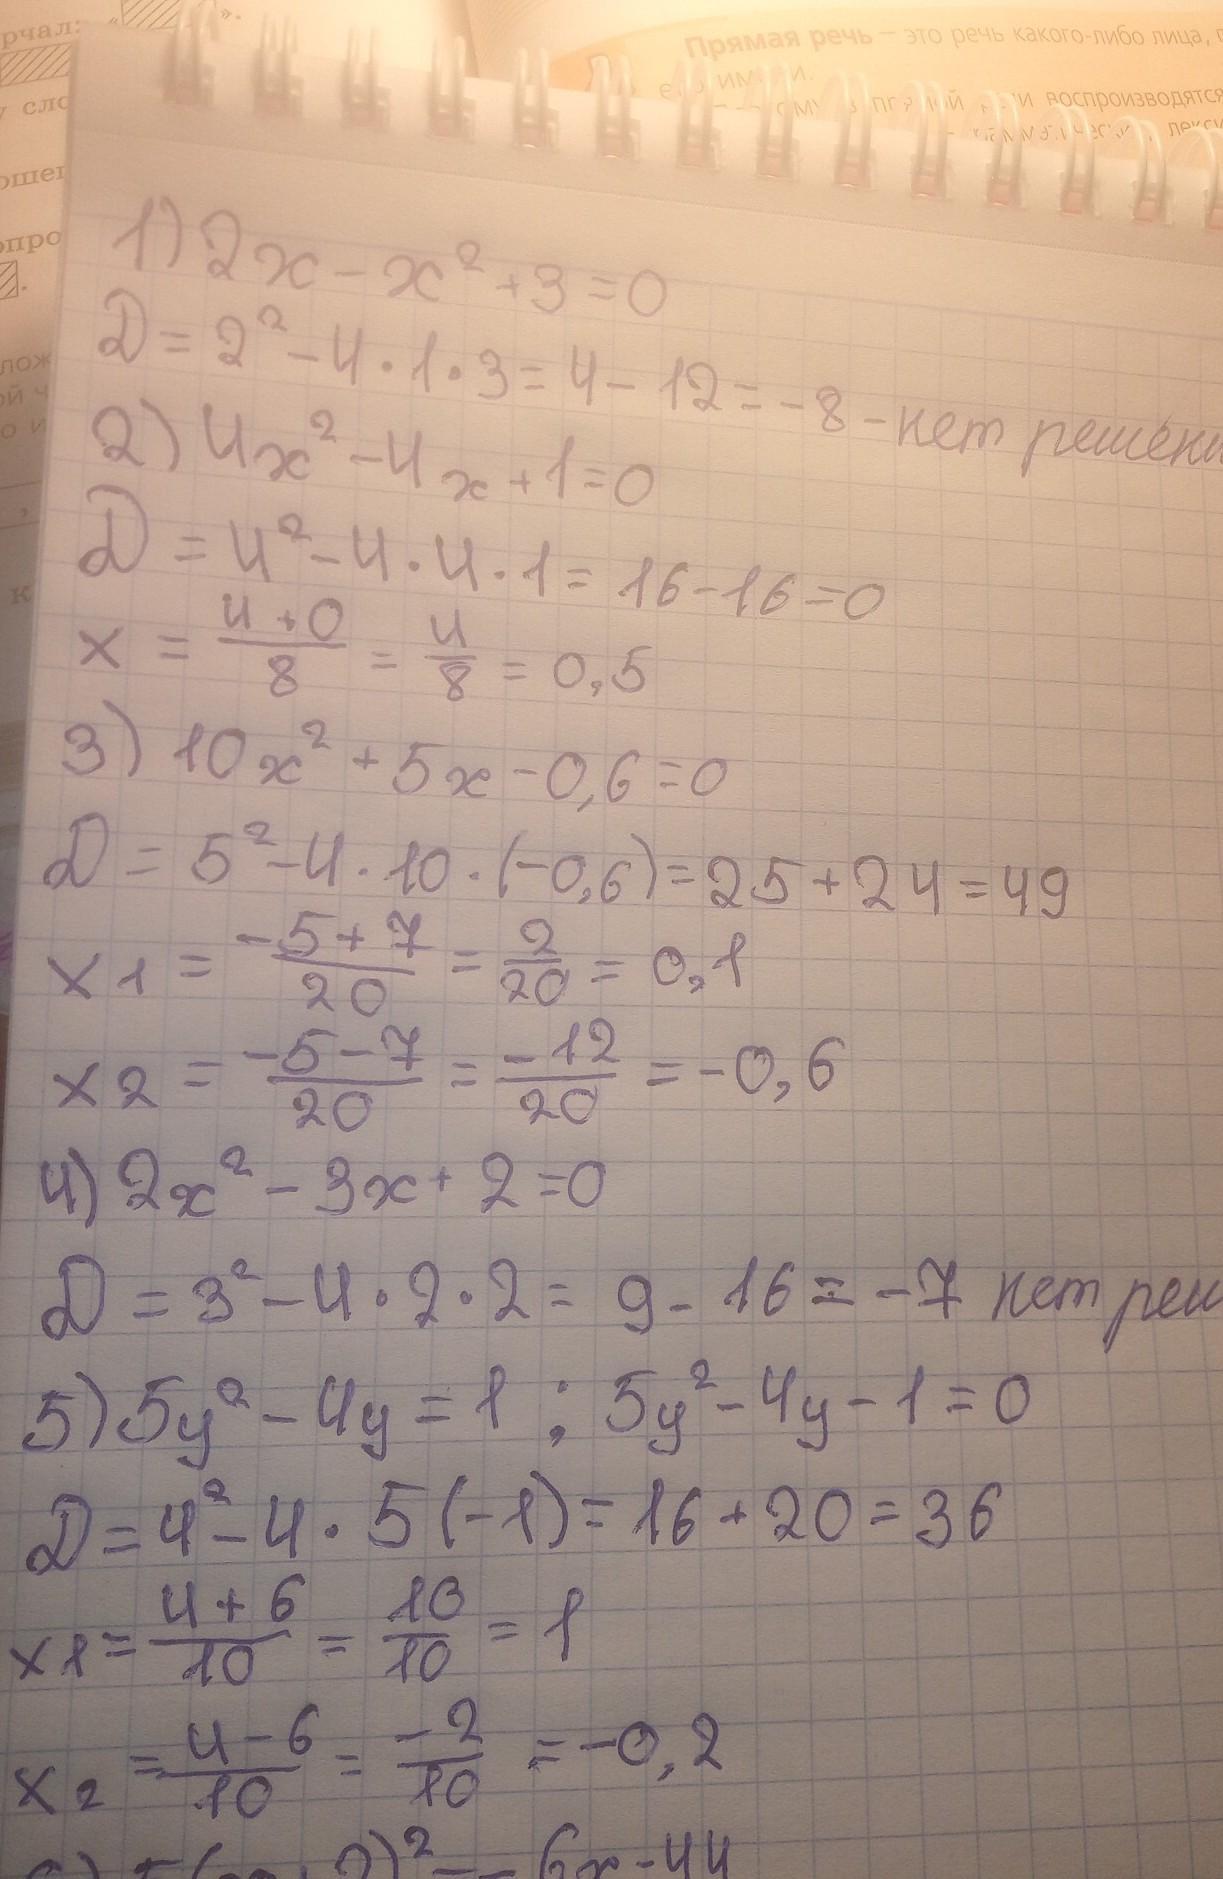 рчал: « ».
Прямая речь – это речь какого-либо лица,
воспроизводятся
1) 2x - x² + 3 = 0
D = 2² - 4 · 1 · 3 = 4 - 12 = -8 - нет
2) 4x² - 4x + 1 = 0
D = 4² - 4 · 4 · 1 = 16 - 16 = 0
x = (4 + 0)/8 = 4/8 = 0,5
3) 10x² + 5x - 0,6 = 0
D = 5² - 4 · 10 · (-0,6) = 25 + 24 = 49
x1 = (-5 + 7)/20 = 2/20 = 0,1
x2 = (-5 - 7)/20 = -12/20 = -0,6
4) 2x² - 3x + 2 = 0
D = 3² - 4 · 2 · 2 = 9 - 16 = -7 нет реш
5) 5y² - 4y = 1 ; 5y² - 4y - 1 = 0
D = 4² - 4 · 5(-1) = 16 + 20 = 36
x1 = (4 + 6)/10 = 10/10 = 1
x2 = (4 - 6)/10 = -2/10 = -0,2